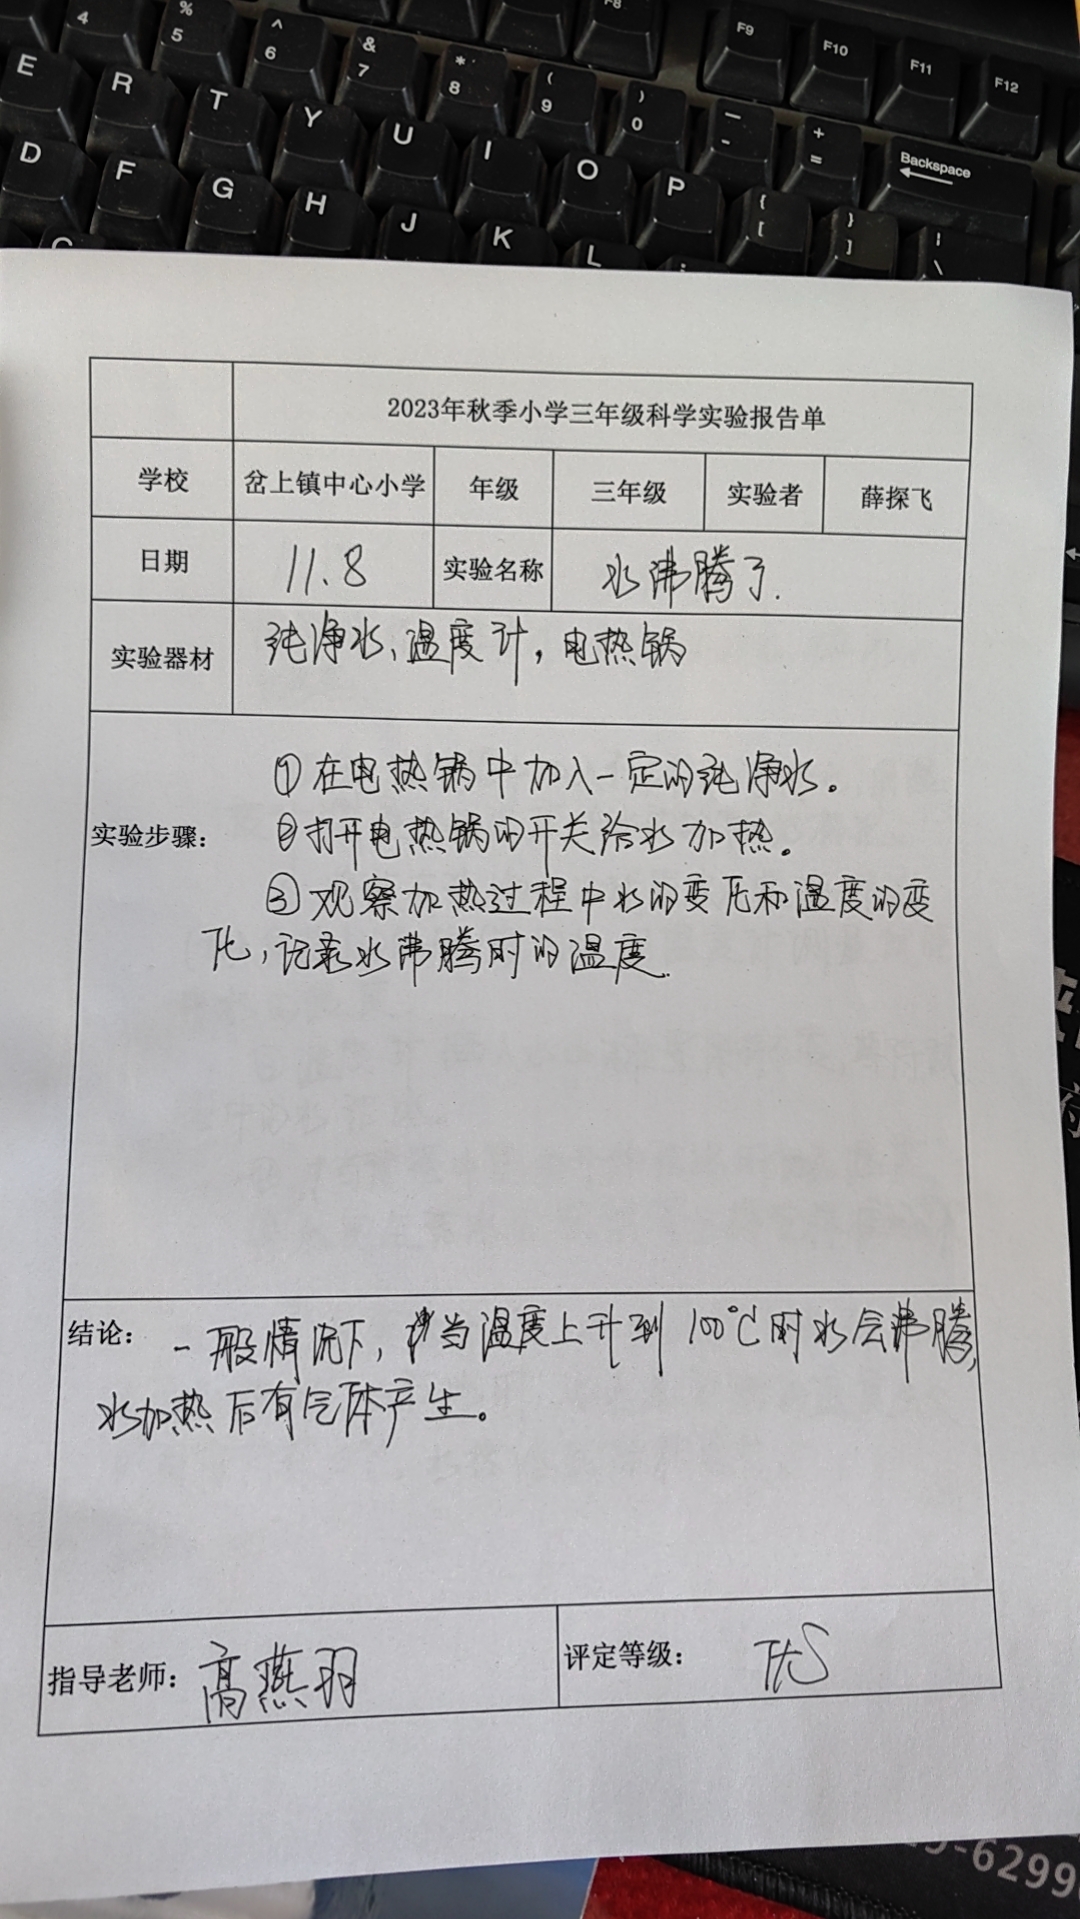 F8
4
% 5
^ 6
& 7
* 8
( 9
) 0
— -
+ =
F9
F10
F11
F12
Backspace
E R T Y U I O P { [ } ] | \
D F G H J K L
2023年秋季小学三年级科学实验报告单
学校 岔上镇中心小学 年级 三年级 实验者 薛探飞
日期 11.8 实验名称 水沸腾了.
实验器材 纯净水、温度计，电热锅
实验步骤：
①在电热锅中加入一定的纯净水。
②打开电热锅的开关给水加热。
③观察加热过程中水的变化和温度的变
化，记录水沸腾时的温度.
结论： 一般情况下，当温度上升到 100℃时水会沸腾，
水加热后有气体产生。
指导老师： 高燕羽 评定等级：
-6299